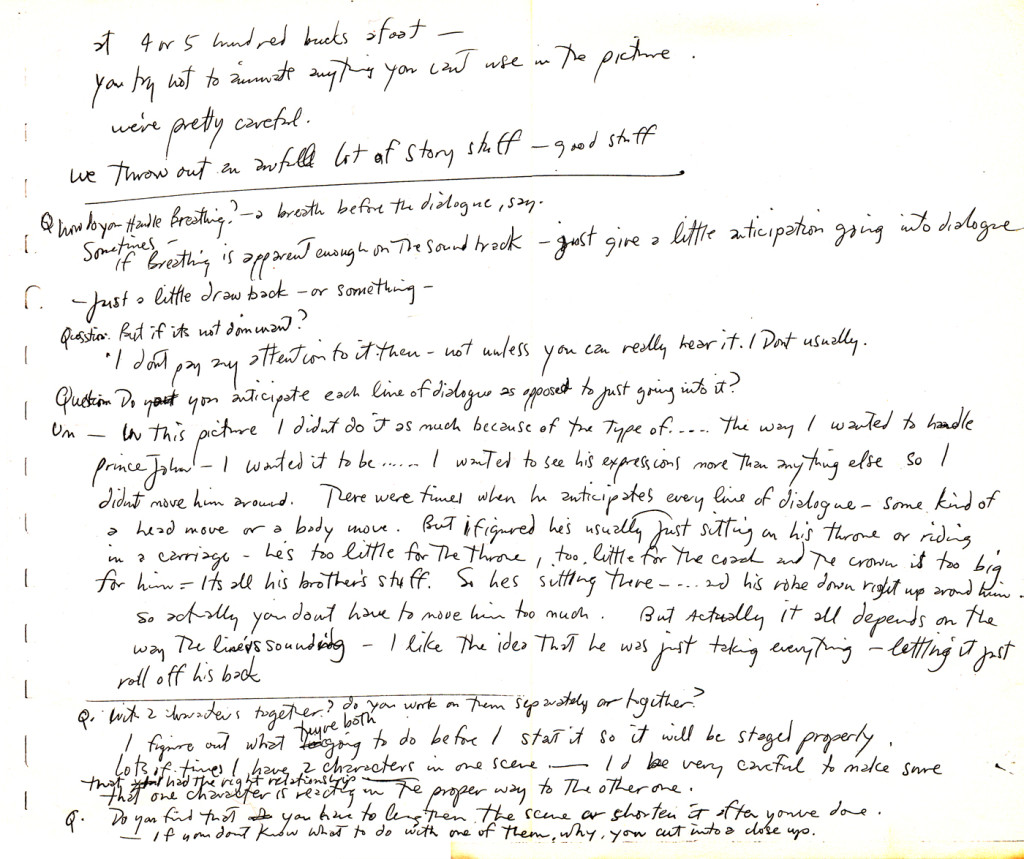 at 4 or 5 hundred bucks afoot —
you try not to animate anything you can't use in the picture.
we're pretty careful.
we throw out an awfull lot of story stuff — good stuff
Q How do you Handle Breathing? — a breath before the dialogue, say.
Sometimes —
if Breathing is apparent enough on the sound track — just give a little anticipation going into dialogue
— Just a little draw back — or something —
Question: But if its not dominant?
"I don't pay any attention to it then — not unless you can really hear it. I Dont usually.
Question Do you anticipate each line of dialogue as opposed to just going into it?
Um — In this picture I didnt do it as much because of the type of..... The way I wanted to handle
prince John — I wanted it to be...... I wanted to see his expressions more than anything else so I
didnt move him around. There were times when he anticipates every line of dialogue — some kind of
a head move or a body move. But i figured he's usually just sitting on his throne or riding
in a carriage — he's too little for the throne, too little for the coach and the crown is too big
for him = Its all his brother's stuff. So hes sitting there — .... and his robe down right up around him —
so actually you dont have to move him too much. But Actually it all depends on the
way the line's sounding — I like the idea that he was just taking everything — letting it just
roll off his back
Q. With 2 characters together? do you work on them separately or together?
I figure out what they're both going to do before I start it so it will be staged properly.
Lots of times I have 2 characters in one scene — I'd be very careful to make sure
that had the right relationships
that one character is reacting in the proper way to the other one.
Q. Do you find that you have to lengthen the scene or shorten it after youve done.
— If you dont know what to do with one of them, why, you cut into a close up.